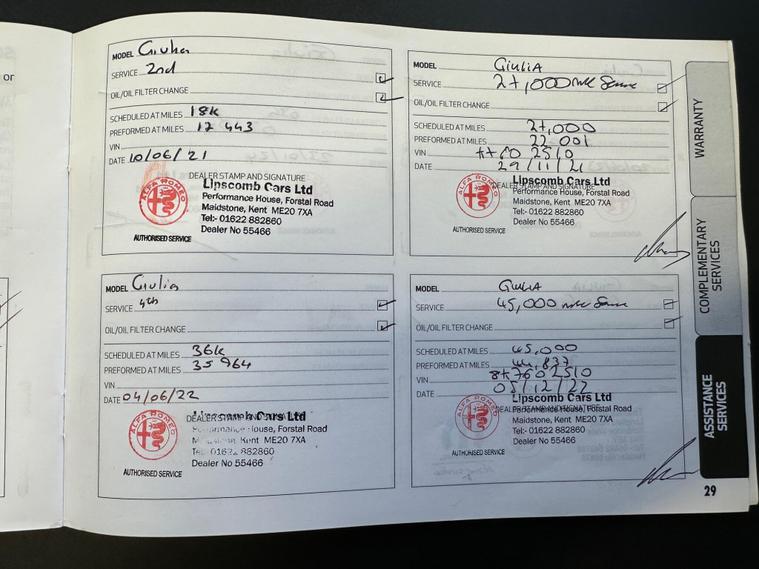 or
MODEL Giulia
SERVICE 2nd
OIL/OIL FILTER CHANGE
SCHEDULED AT MILES 18k
PREFORMED AT MILES 17 443
VIN
DATE 10/06/21
DEALER STAMP AND SIGNATURE
ALFA ROMEO
Lipscomb Cars Ltd
Performance House, Forstal Road
Maidstone, Kent ME20 7XA
Tel:- 01622 882860
Dealer No 55466
AUTHORISED SERVICE
MODEL GIULIA
SERVICE 27,000 mile Service
OIL/OIL FILTER CHANGE
SCHEDULED AT MILES 27,000
PREFORMED AT MILES 22 001
VIN
DATE 29/11/21
DEALER STAMP AND SIGNATURE
ALFA ROMEO
Lipscomb Cars Ltd
Performance House, Forstal Road
Maidstone, Kent ME20 7XA
Tel:- 01622 882860
Dealer No 55466
AUTHORISED SERVICE
MODEL Giulia
SERVICE 4th
OIL/OIL FILTER CHANGE
SCHEDULED AT MILES 36k
PREFORMED AT MILES 35 964
VIN
DATE 04/06/22
DEALER STAMP AND SIGNATURE
ALFA ROMEO
Lipscomb Cars Ltd
Performance House, Forstal Road
Maidstone, Kent ME20 7XA
Tel:- 01622 882860
Dealer No 55466
AUTHORISED SERVICE
MODEL GIULIA
SERVICE 45,000 mile Service
OIL/OIL FILTER CHANGE
SCHEDULED AT MILES 45,000
PREFORMED AT MILES 44,837
VIN
DATE 05/12/22
DEALER STAMP AND SIGNATURE
ALFA ROMEO
Lipscomb Cars Ltd
Performance House, Forstal Road
Maidstone, Kent ME20 7XA
Tel:- 01622 882860
Dealer No 55466
AUTHORISED SERVICE
WARRANTY
COMPLEMENTARY
SERVICES
ASSISTANCE
SERVICES
29